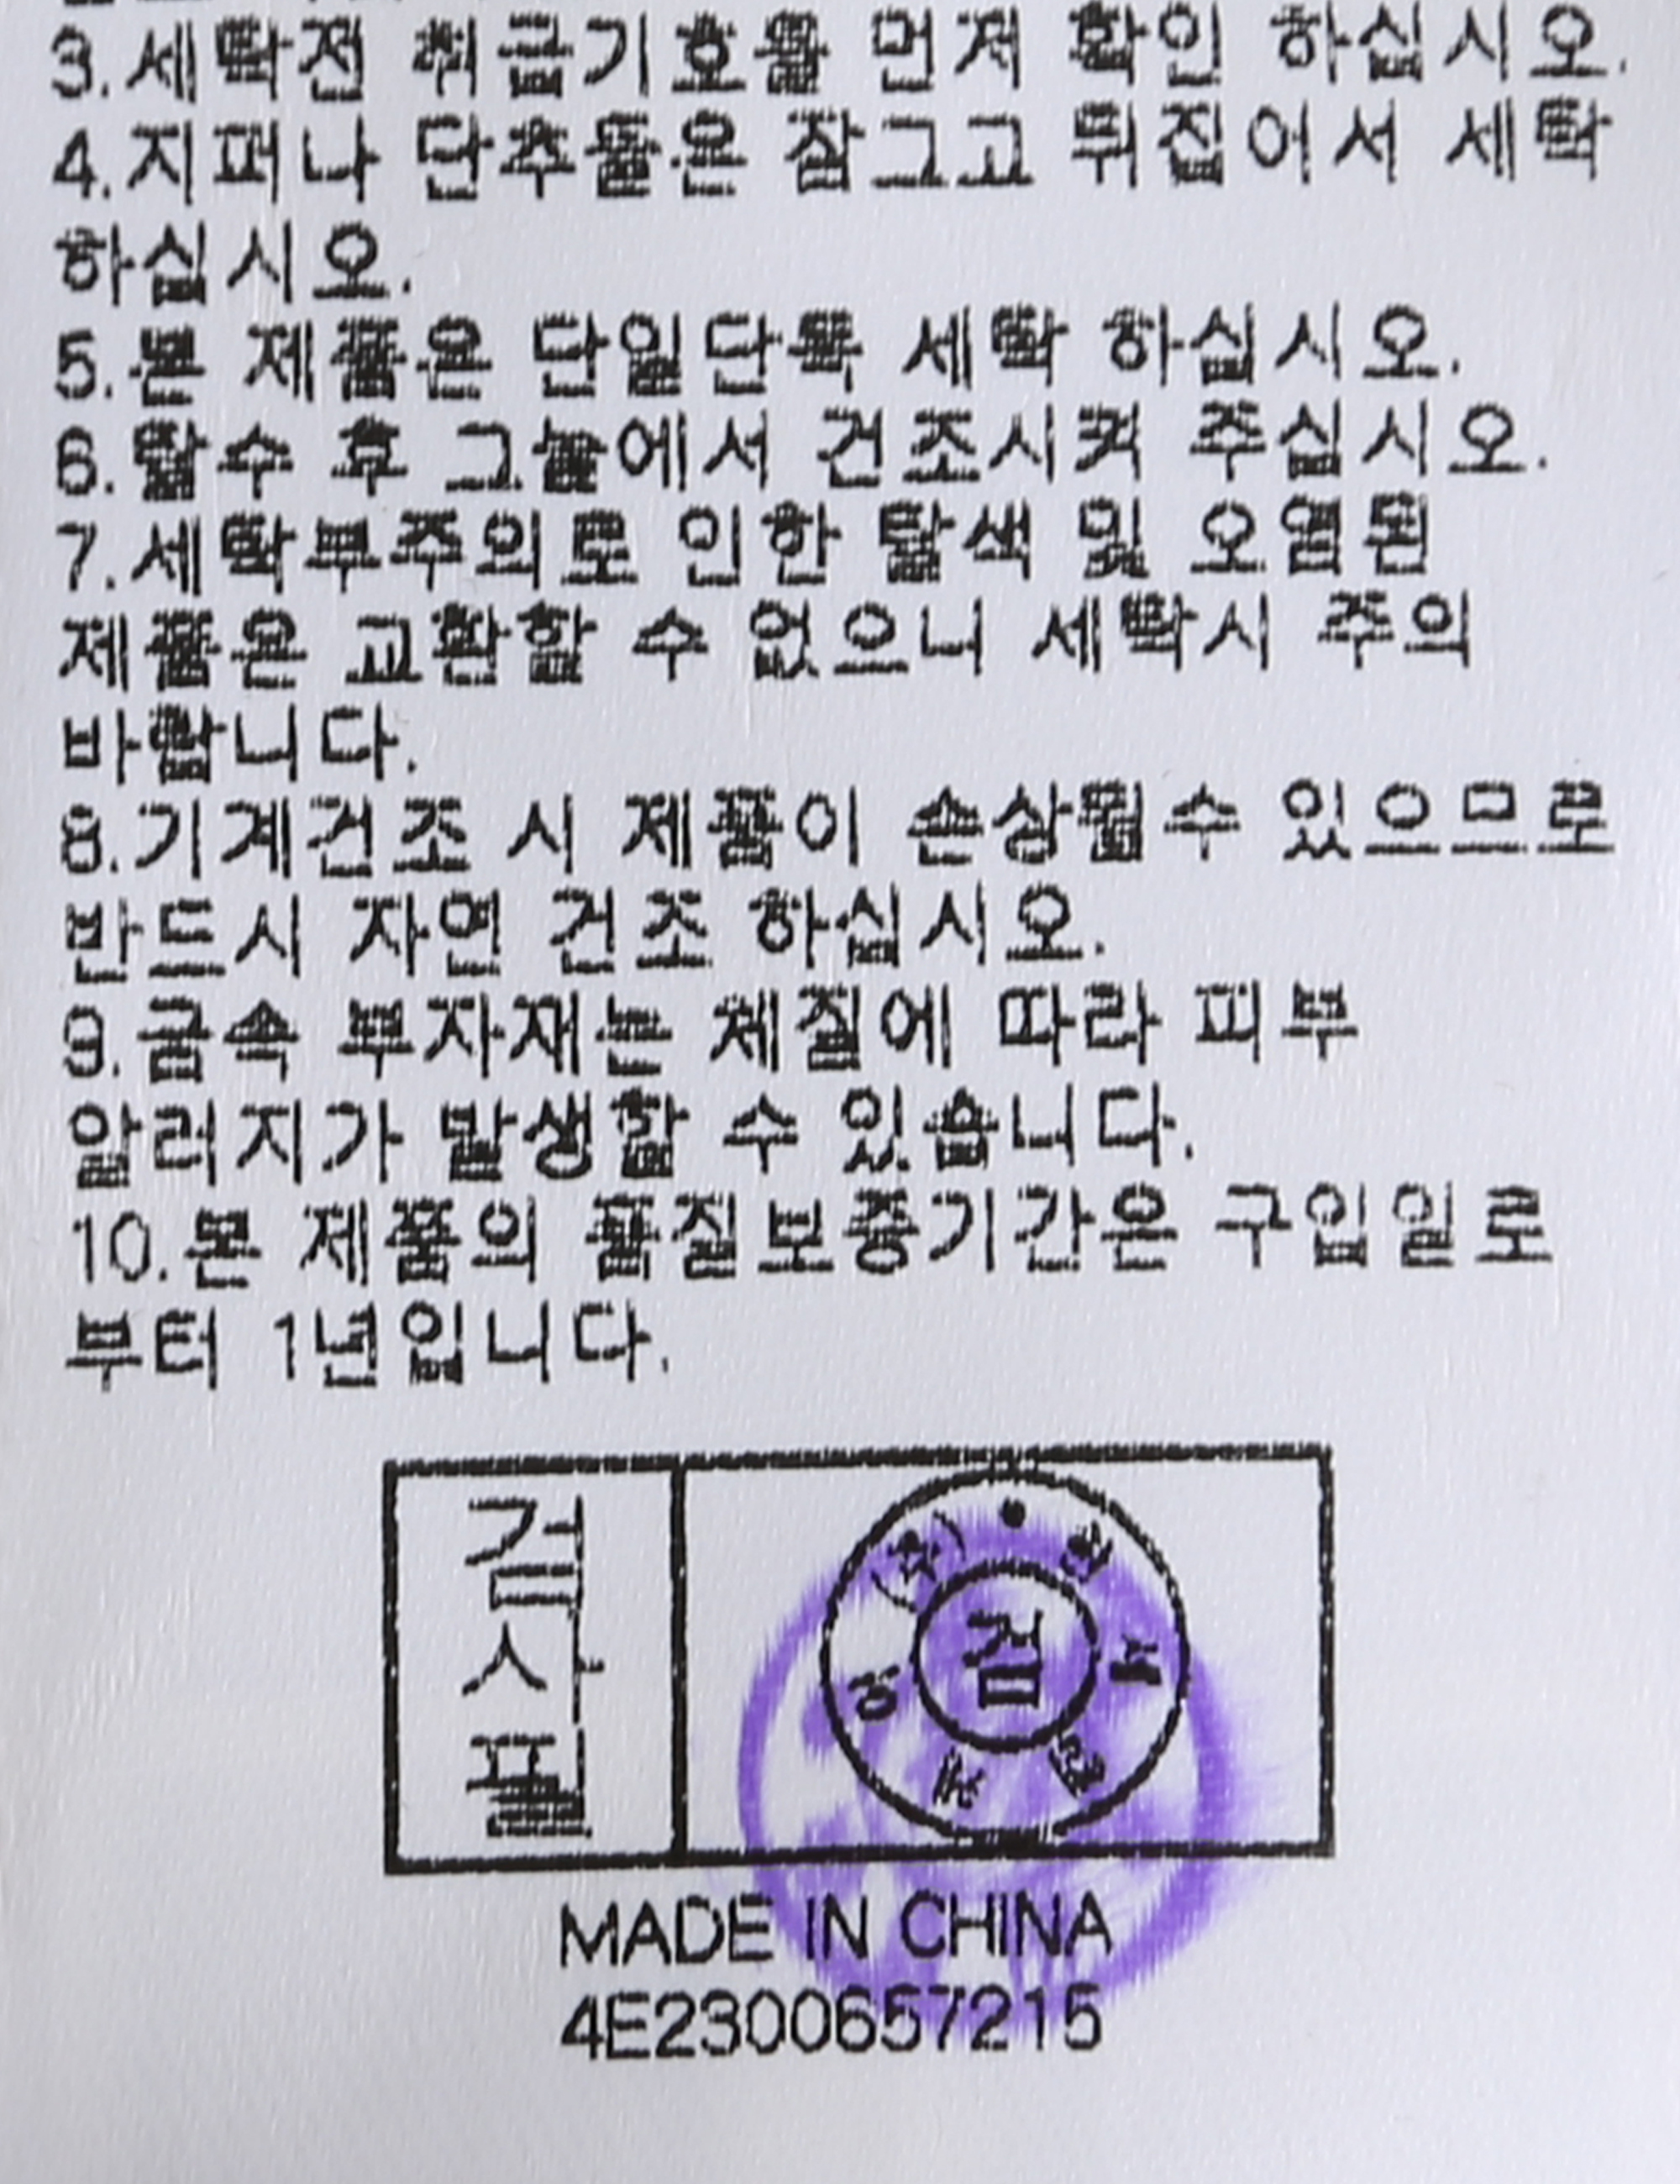 3.세탁전 취급기호를 먼저 확인 하십시오.
4.지퍼나 단추들은 잠그고 뒤집어서 세탁
하십시오.
5.본 제품은 단일단독 세탁 하십시오.
6.탈수 후 그늘에서 건조시켜 주십시오.
7.세탁부주의로 인한 탈색 및 오염된
제품은 교환할 수 없으니 세탁시 주의
바랍니다.
8.기계건조 시 제품이 손상될수 있으므로
반드시 자연 건조 하십시오.
9.금속 부자재는 체질에 따라 피부
알러지가 발생할 수 있습니다.
10.본 제품의 품질보증기간은 구입일로
부터 1년입니다.
검사필
검
MADE IN CHINA
4E2300657215